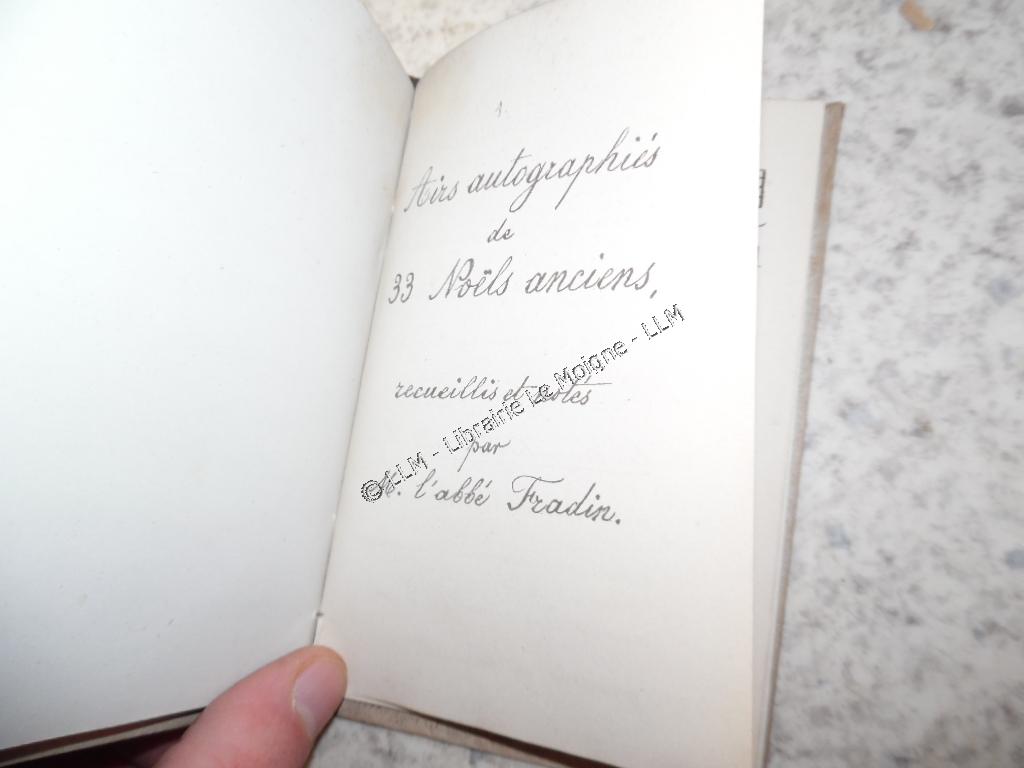 1.
Airs autographiés
de
33 Noëls anciens,
recueillis et notés
par
M. l'abbé Fradin.
© LLM - Librairie Le Moigne - LLM